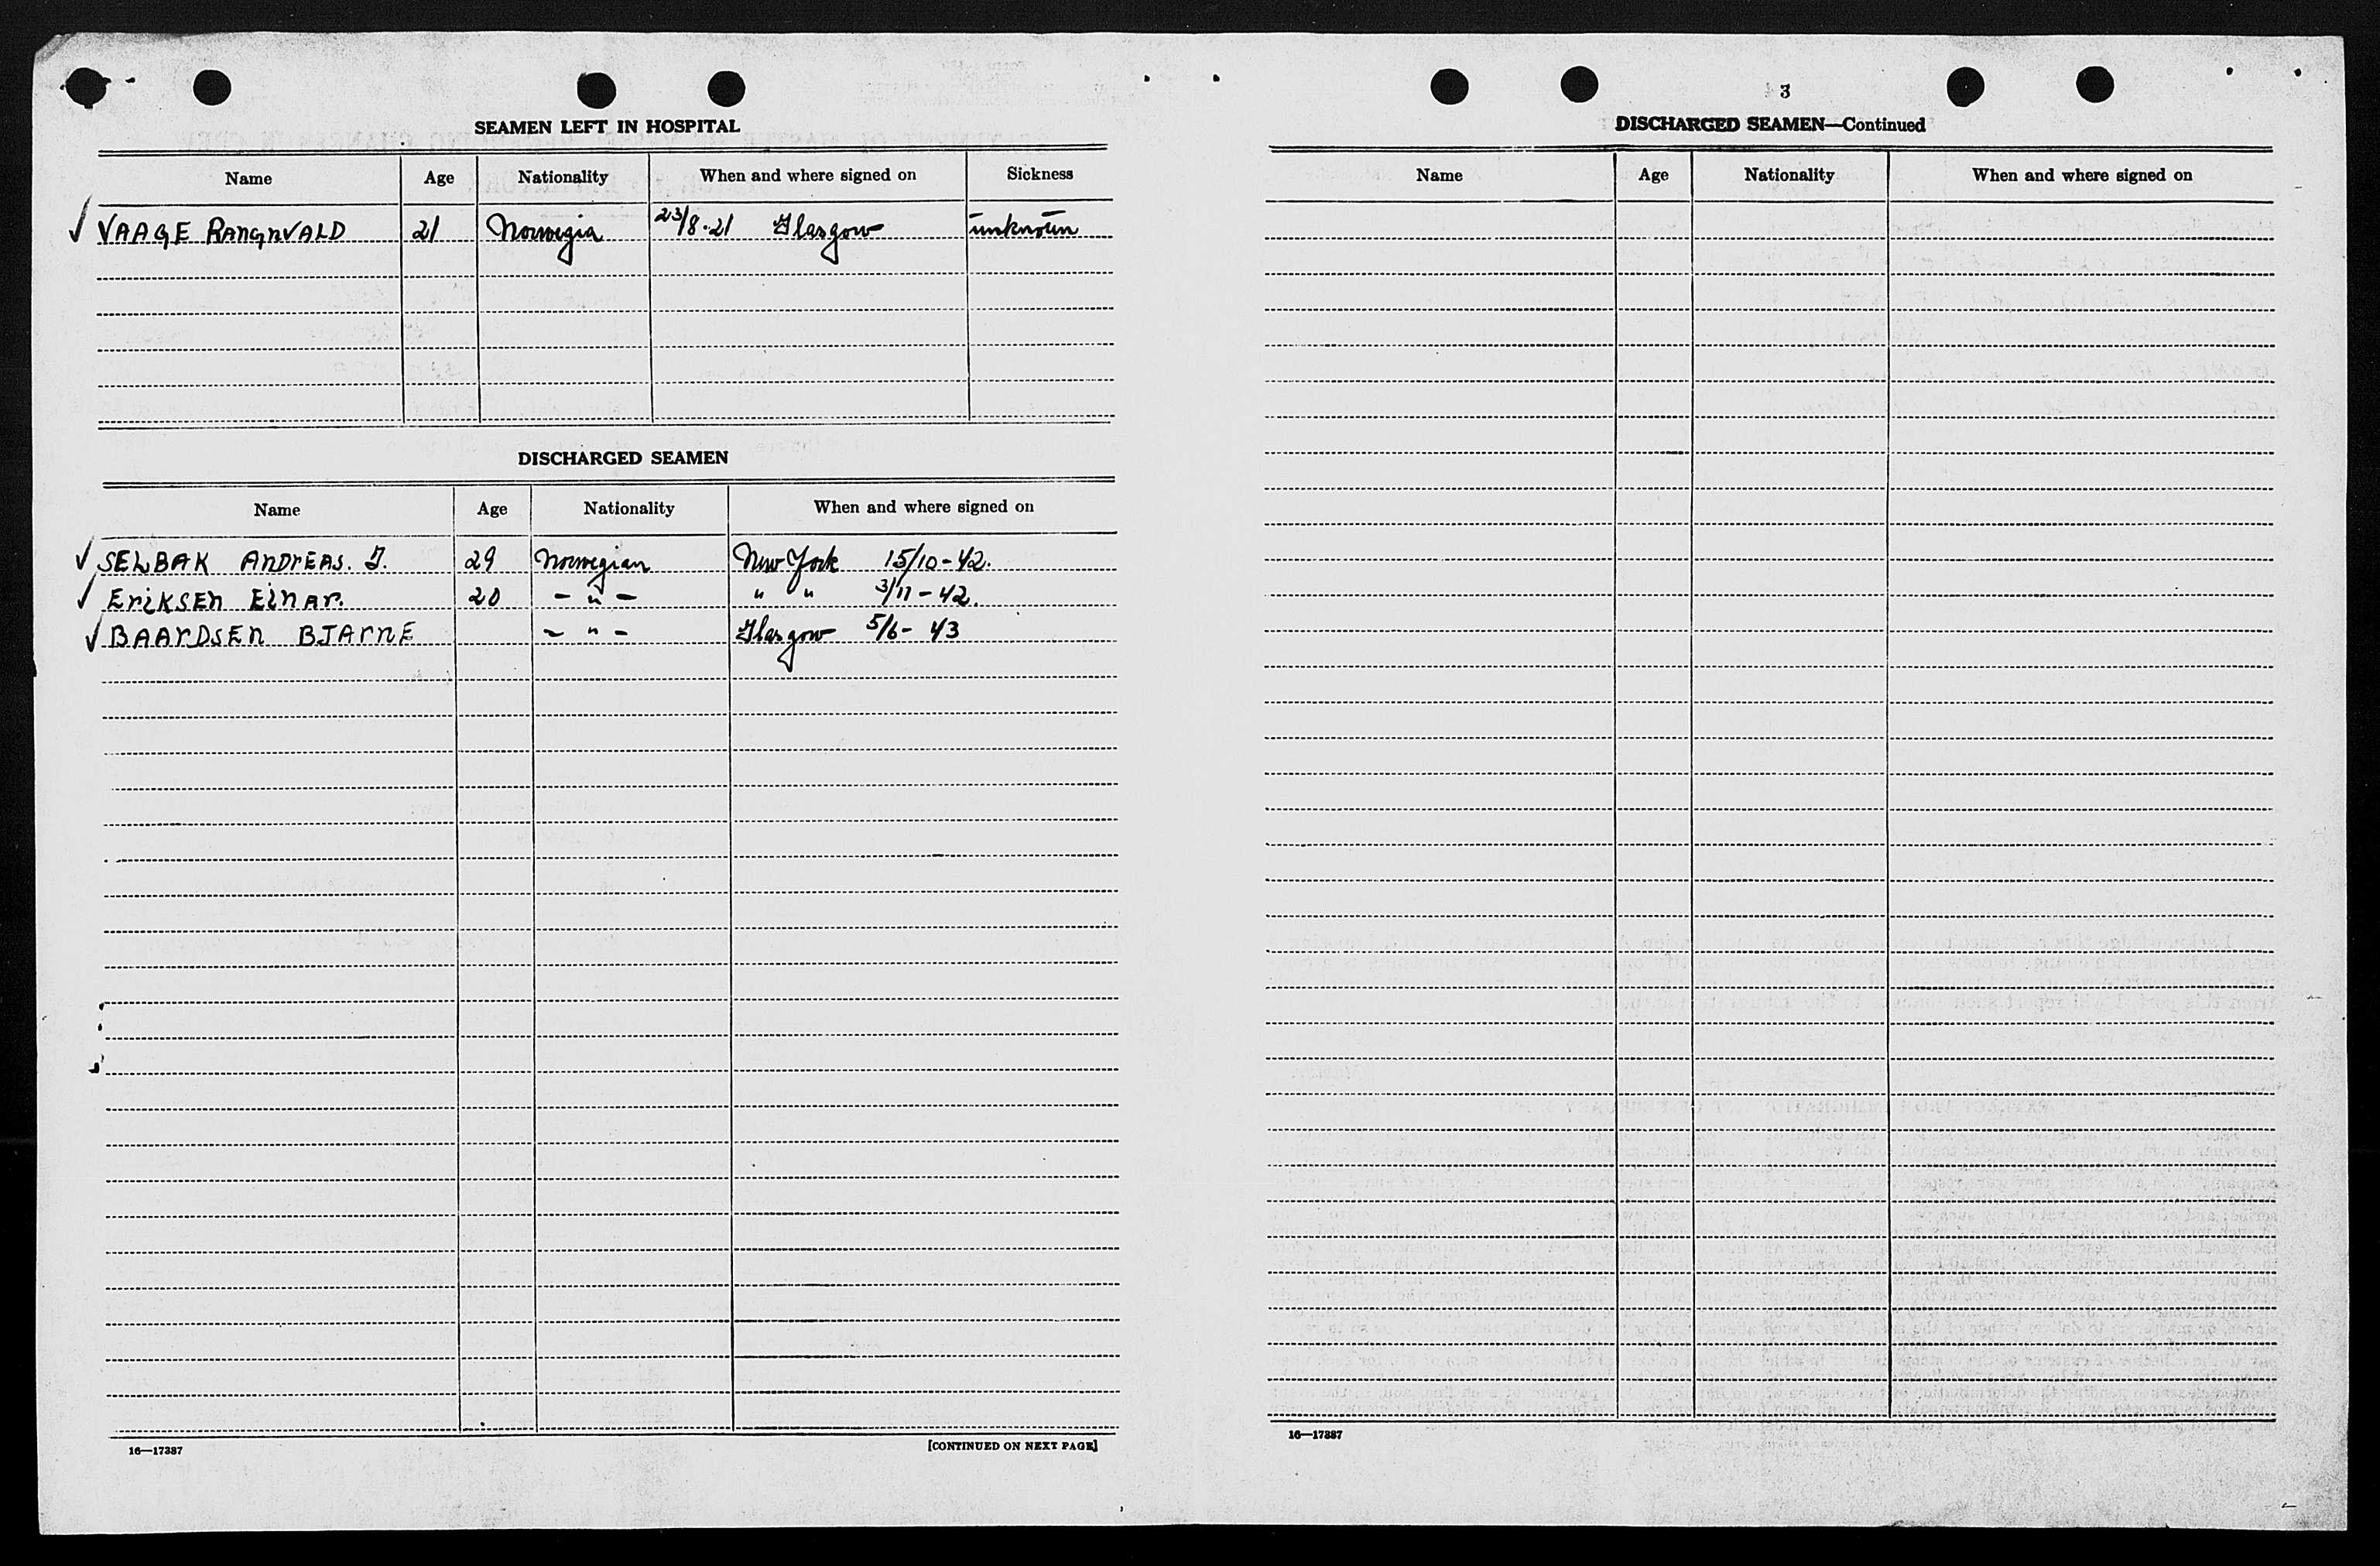 SEAMEN LEFT IN HOSPITAL
Name Age Nationality When and where signed on Sickness
✓ VAAGE RANGNVALD 21 Norwegia 23/8-21 Glasgow unknown
DISCHARGED SEAMEN
Name Age Nationality When and where signed on
✓ SELBAK ANDREAS. J. 29 Norwegian New York 15/10-42.
✓ ERIKSEN EINAR. 20 - " - " " 3/11-42.
✓ BAARDSEN BJARNE - " - Glasgow 5/6-43
16—17387 [CONTINUED ON NEXT PAGE]
3
DISCHARGED SEAMEN—Continued
Name Age Nationality When and where signed on
16—17387